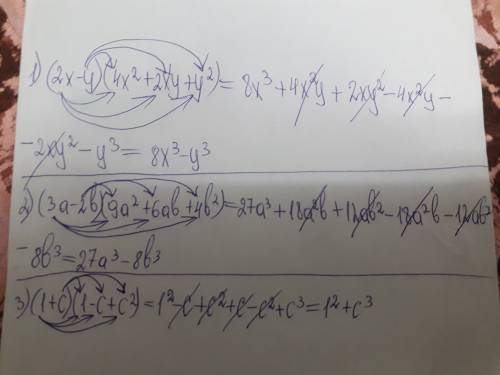 1) (2x-y)(4x²+2xy+y²)=8x³+4x²y+2xy²-4x²y-
-2xy²-y³=8x³-y³
2) (3a-2b)(9a²+6ab+4b²)=27a³+18a²b+12ab²-18a²b-12ab²
-8b³=27a³-8b³
3) (1+c)(1-c+c²)=1²-c+c²+c-c²+c³=1²+c³